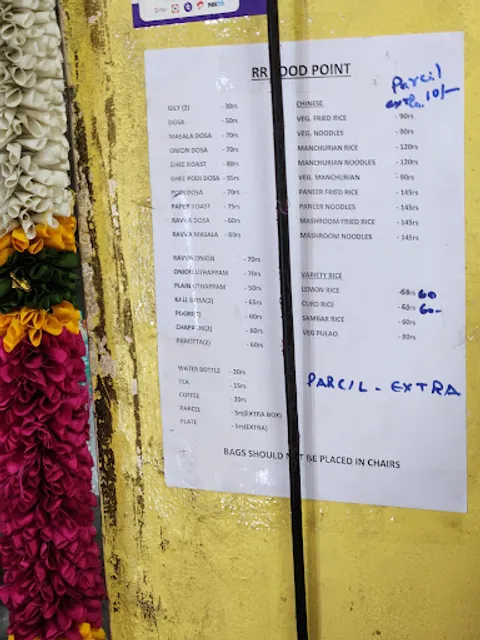 PAYTM
RR FOOD POINT
Parcil
extra 10/-
IDLY (2) - 30rs
DOSA - 50rs
MASALA DOSA - 70rs
ONION DOSA - 70rs
GHEE ROAST - 80rs
GHEE PODI DOSA - 95rs
PODI DOSA - 70rs
PAPER ROAST - 75rs
RAVVA DOSA - 60rs
RAVVA MASALA - 80rs
RAVVA ONION - 70rs
ONION UTHAPPAM - 70rs
PLAIN UTHAPPAM - 50rs
KALL DOSA(2) - 65rs
POORI(2) - 60rs
CHAPATHI(2) - 60rs
PAROTTA(2) - 60rs
WATER BOTTLE - 20rs
TEA - 15rs
COFFEE - 20rs
PARCEL - 5rs(EXTRA BOX)
PLATE - 5rs(EXTRA)
CHINESE
VEG. FRIED RICE - 90rs
VEG. NOODLES - 90rs
MANCHURIAN RICE - 120rs
MANCHURIAN NOODLES - 120rs
VEG. MANCHURIAN - 90rs
PANEER FRIED RICE - 145rs
PANEER NOODLES - 145rs
MASHROOM FRIED RICE - 145rs
MASHROOM NOODLES - 145rs
VARIETY RICE
LEMON RICE 60
CURD RICE 60-
SAMBAR RICE - 60rs
VEG PULAO - 80rs
PARCIL - EXTRA
BAGS SHOULD NOT BE PLACED IN CHAIRS